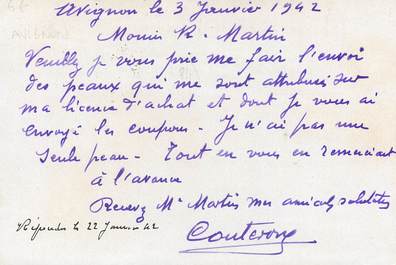 Avignon le 3 Janvier 1942
Monsieur R. Martin
Veuillez je vous prie me fair l'envoi
des peaux qui me sont attribués sur
ma licence d'achat et dont je vous ai
envoyé les coupons - Je n'ai pas une
seule peau - Tout en vous en remerciant
à l'avance
Recevez Mr Martin mes amicales salutations
Répondu le 22 Janvier 42